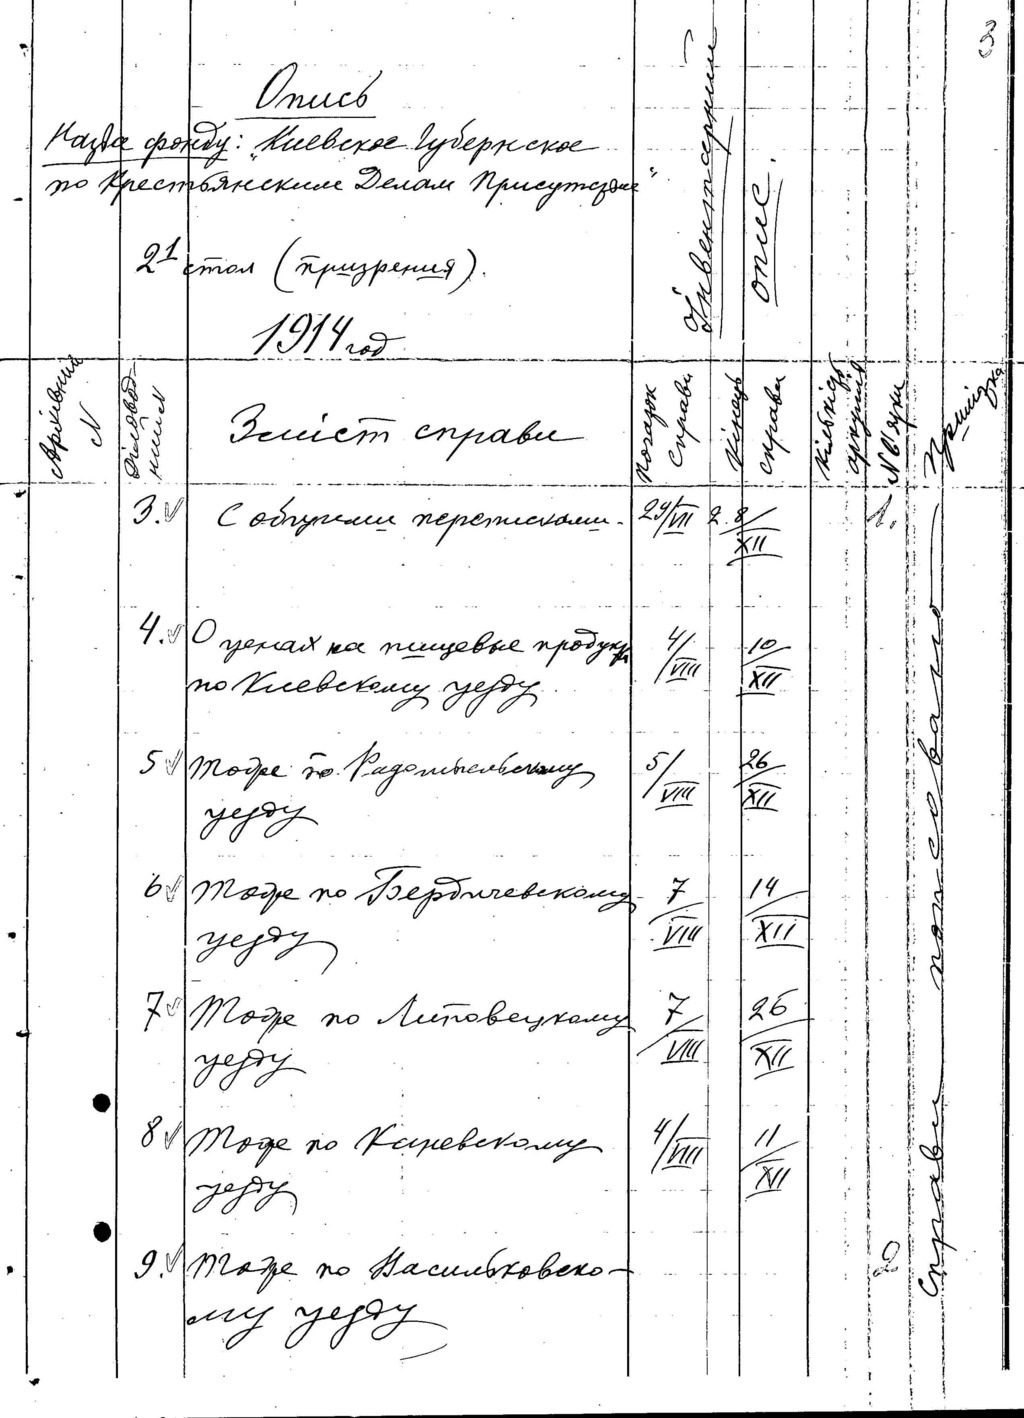 3
Опись
Назва фонду: „Киевское Губернское
по Крестьянским Делам Присутствие"
2й стол (призрения).
1914 год
Інвентарний
опис.
Архівний
N
Діловод-
ний N
Зміст справи
Початок
справи
Кінець
справи
Кількість
аркушів
N в'язки
Примітка
3. С общими переписками. 29/VII 2. 8/XII 1.
4. О ценах на пищевые продукты 4/VIII 10/XII
по Киевскому уезду
5 Тоже по Радомысльскому 5/VIII 26/XII
уезду
6 Тоже по Бердичевскому 7/VIII 14/XII
уезду
7 Тоже по Липовецкому 7/VIII 26/XII
уезду
8 Тоже по Каневскому 4/VIII 11/XII
уезду
9. Тоже по Васильковско- 2
му уезду
Справи